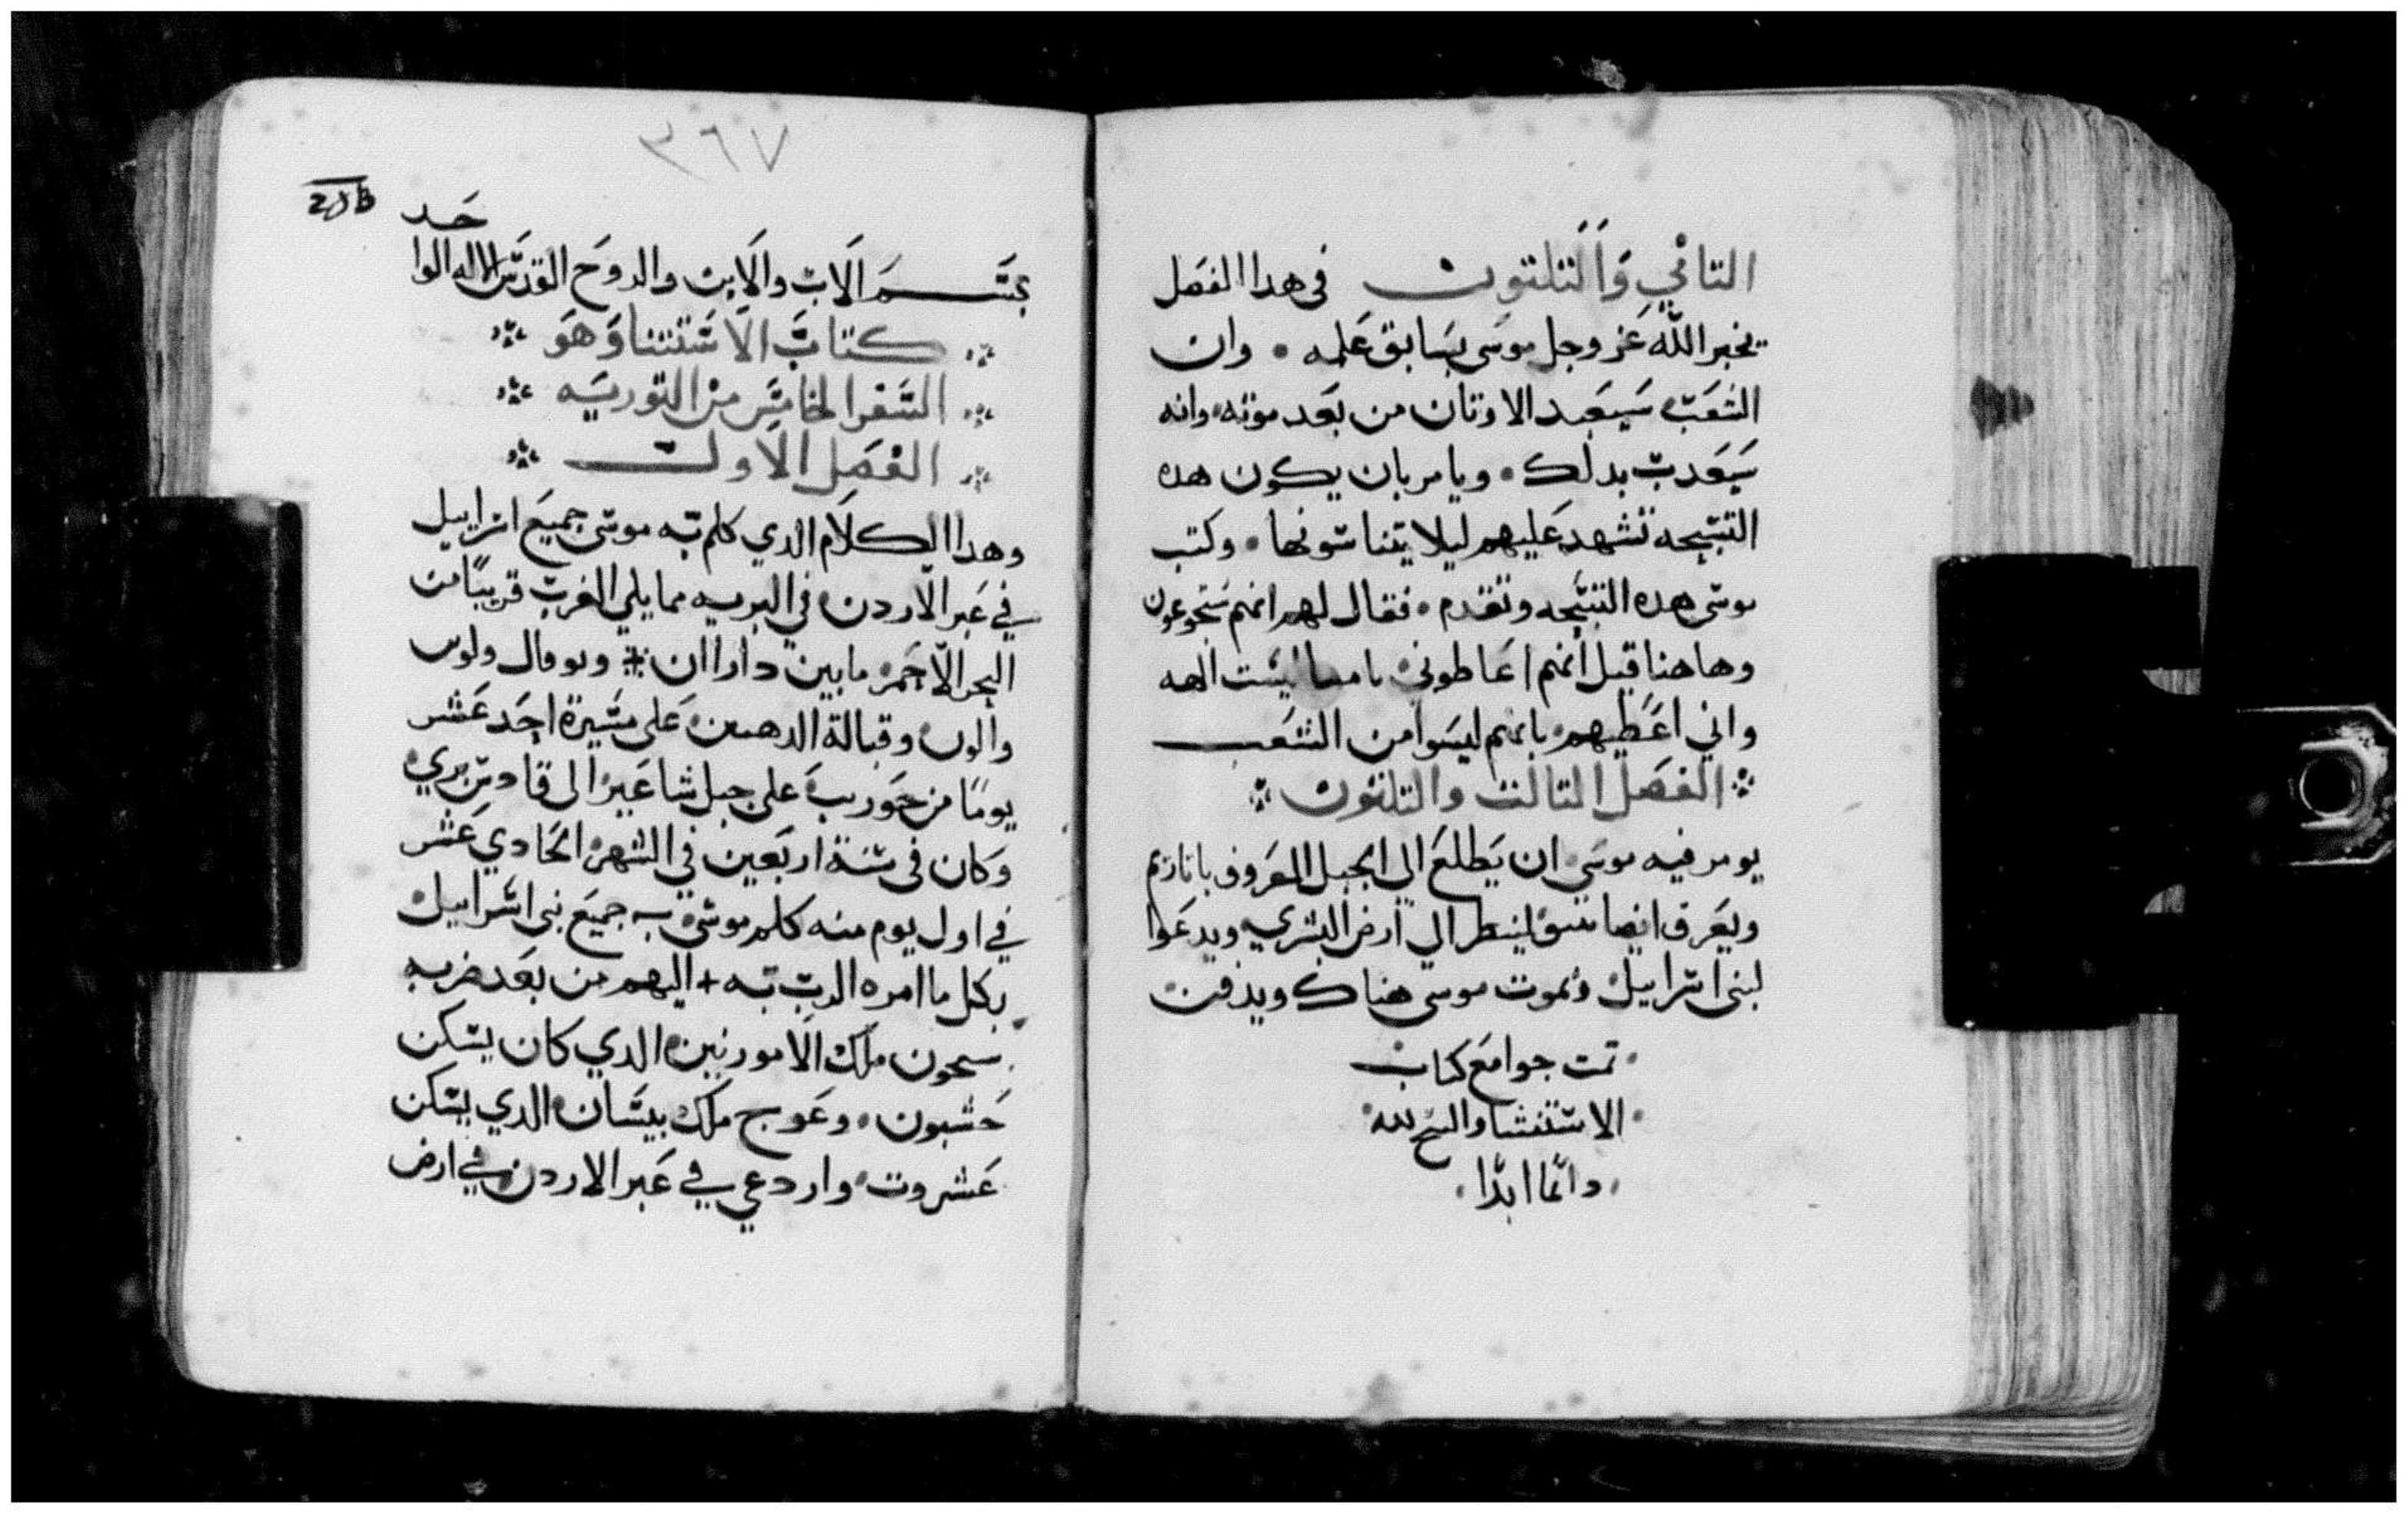 التاني والتلتون في هدا الفصل
يخبر الله عز وجل موسى بسابق علمه • وان
الشعب سيعبد الاوتان من بعد موته • وانه
سيعدب بدلك • ويامر بان يكون هده
التسبحه تشهد عليهم ليلا يتناسونها • وكتب
موسى هده التسبحه وتقدم • فقال لهم انهم
وها هنا قيل انهم اغاطوني ليست الهه
واني اغيطهم بانهم ليسوا من الشعب
الفصل التالت والتلتون
يومر فيه موسى ان يطلع الي الجبل المعروف
ويعرف ايضا لينظر الي ارض البشري ويدعوا
لبني اسراييل ويموت موسى هناك ويدفن
تمت جوامع كتاب
الاستتنا والسبح لله
دائما ابدا
٣٦٧
حد
بسم الاب والابن والروح القدس الاله الوا
كتاب الاستتنا وهو
السفر الخامس من التوريه
الفصل الاول
وهدا الكلام الدي كلم به موسى جميع اسراييل
في عبر الاردن في البريه مما يلي الغرب قريبا من
البحر الاحمر ما بين داراان وبوفال ولوبن
والون وقبالة الدهب على مسيرة احد عشر
يوما من حوريب على جبل شاعير الى قادس بري
وكان في سنة اربعين في الشهر الحادي عشر
في اول يوم منه كلم موسى به جميع بني اسراييل
بكل ما امره الرب به + اليهم من بعد ضربه
سيحون ملك الامورنيين الدي كان يسكن
حشبون • وعوج ملك بيسان الدي يسكن
عشروت • واردعي في عبر الاردن في ارض